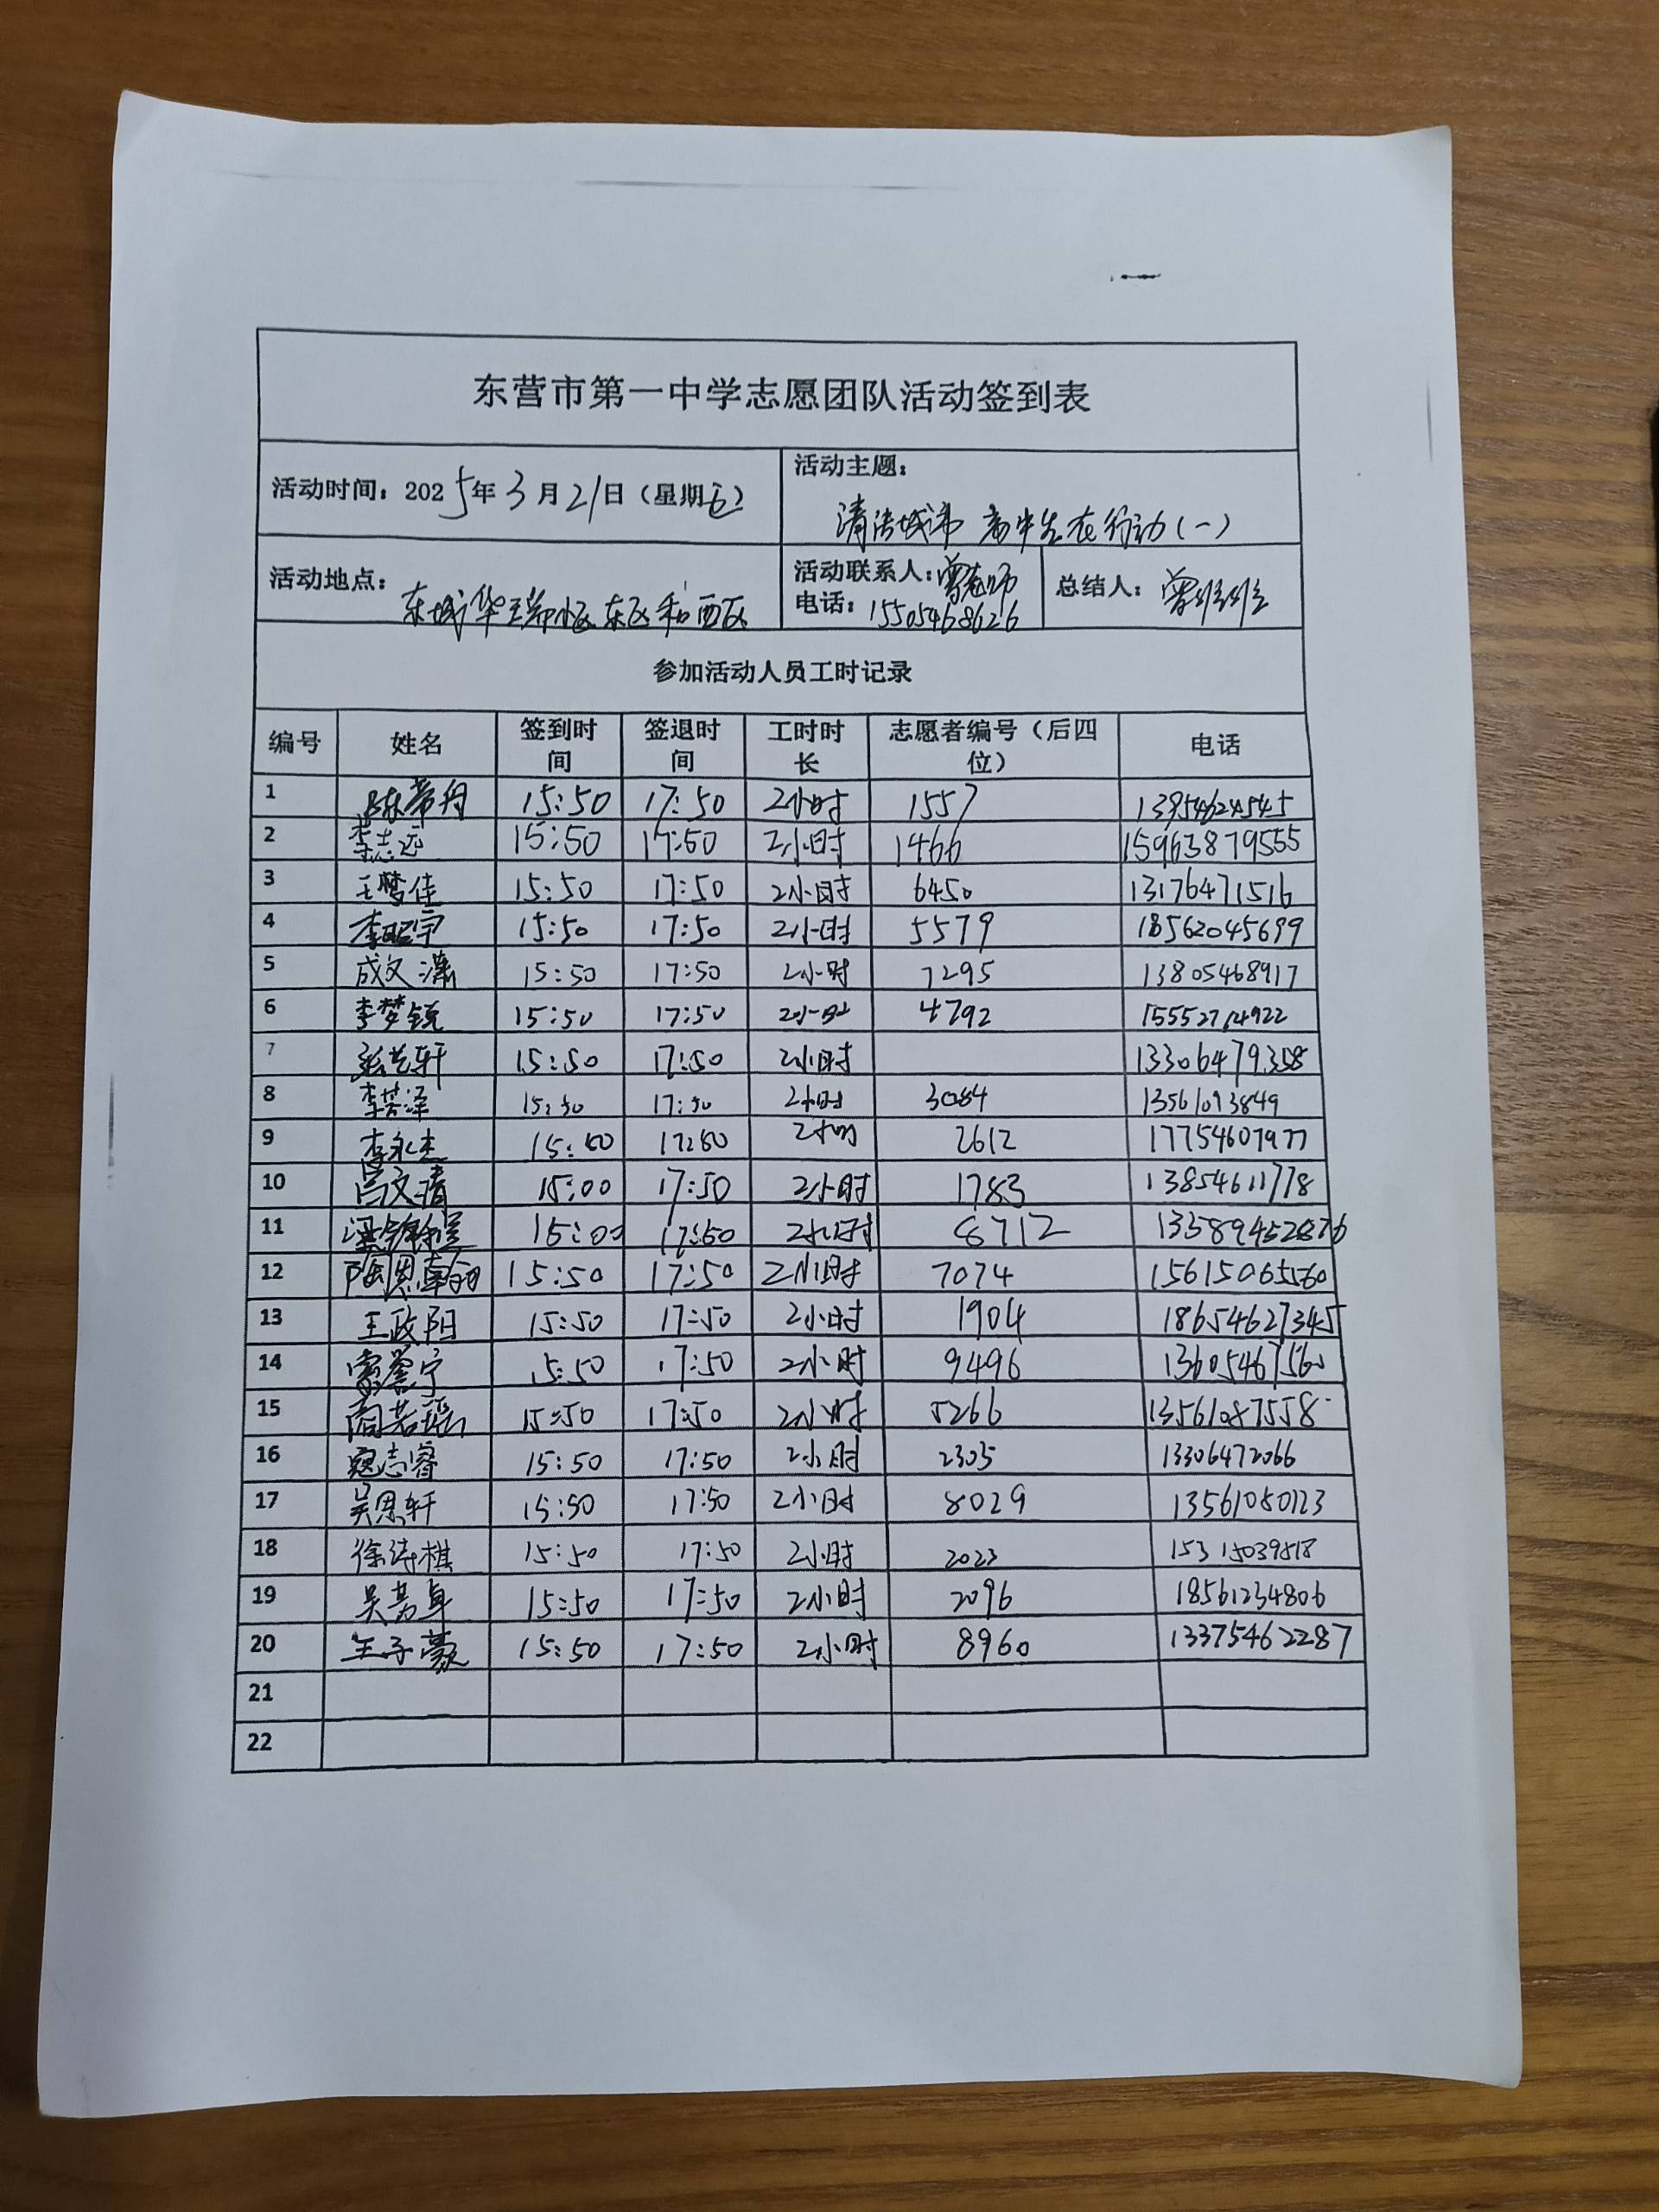 东营市第一中学志愿团队活动签到表
活动时间：2025年3月21日（星期五）
活动主题：
清洁城市 高中生在行动（一）
活动地点：
东城华瑞小区东区和西区
活动联系人：曾老师
电话：15505468626
总结人：曾
参加活动人员工时记录
编号 姓名 签到时间 签退时间 工时时长 志愿者编号（后四位） 电话
1 陈常舟 15:50 17:50 2小时 1557
2 李志远 15:50 17:50 2小时 1466 15963879555
3 王梦佳 15:50 17:50 2小时 6450 13176471516
4 李昭宇 15:50 17:50 2小时 5579 18562045699
5 成文潇 15:50 17:50 2小时 7295 13805468917
6 李梦锐 15:50 17:50 2小时 4792
7 张艺轩 15:50 17:50 2小时 13306479358
8 李芳泽 15:50 17:50 2小时 3084 13561093849
9 李永杰 15:50 17:50 2小时 2612 17754607977
10 吕文清 15:00 17:50 2小时 1783 13854611778
11 15:00 17:50 2小时 8712
12 陶恩翰 15:50 17:50 2小时 7074 15615065560
13 王政阳 15:50 17:50 2小时 1904 18654627345
14 宁 15:50 17:50 2小时 9496 13605467560
15 商若瑶 15:50 17:50 2小时 5266 13561087558
16 寇志睿 15:50 17:50 2小时 2305 13306472066
17 吴思轩 15:50 17:50 2小时 8029 13561080123
18 徐诗棋 15:50 17:50 2小时 2023 15315039518
19 吴若卓 15:50 17:50 2小时 2096 18561234806
20 王子蒙 15:50 17:50 2小时 8960 13375462287
21
22